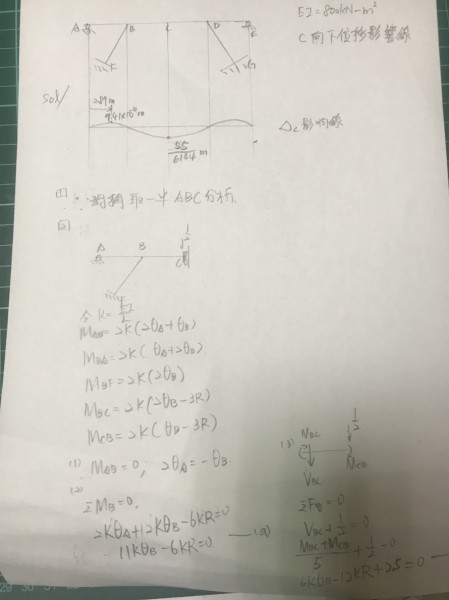 EI=800kN-m²
C向下位移影響線
A
B
C
D
E
F
G
sol/
2.89m
Δc影响線
55
6184 m
[1]
取一半ABC分析
[2]
A
B
C
1
2
令K=
M_AB=2K(2θ_A+θ_B)
M_BA=2K(θ_A+2θ_B)
M_BF=2K(2θ_B)
M_BC=2K(2θ_B-3R)
M_CB=2K(θ_B-3R)
(1) M_AB=0, 2θ_A=-θ_B
(2)
ΣM_B=0,
2Kθ_A+12Kθ_B-6KR=0
11Kθ_B-6KR=0 —(a)
(3)
M_BC
1
2
M_CB
V_BC
ΣF_y=0
V_BC+1/2=0
M_BC+M_CB
5
+1/2=0
6Kθ_B-12KR+2.5=0 —